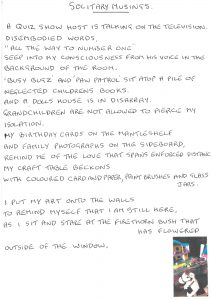 SOLITARY MUSINGS.
A QUIZ SHOW HOST IS TALKING ON THE TELEVISION.
DISEMBODIED WORDS,
"ALL THE WAY TO NUMBER ONE"
SEEP INTO MY CONSCIOUSNESS FROM HIS VOICE IN THE
BACKGROUND OF THE ROOM.
'BUSY BUGZ' AND 'PAW PATROL' SIT ATOP A PILE OF
NEGLECTED CHILDRENS BOOKS.
AND A DOLLS HOUSE IS IN DISARRAY.
GRANDCHILDREN ARE NOT ALLOWED TO PIERCE MY
ISOLATION.
MY BIRTHDAY CARDS ON THE MANTELSHELF
AND FAMILY PHOTOGRAPHS ON THE SIDEBOARD,
REMIND ME OF THE LOVE THAT SPANS ENFORCED DISTANCE
MY CRAFT TABLE BECKONS
WITH COLOURED CARD AND PAPER, PAINT BRUSHES AND GLASS
JARS.
I PUT MY ART ONTO THE WALLS
TO REMIND MYSELF THAT I AM STILL HERE,
AS I SIT AND STARE AT THE FIRETHORN BUSH THAT
HAS FLOWERED
OUTSIDE OF THE WINDOW.